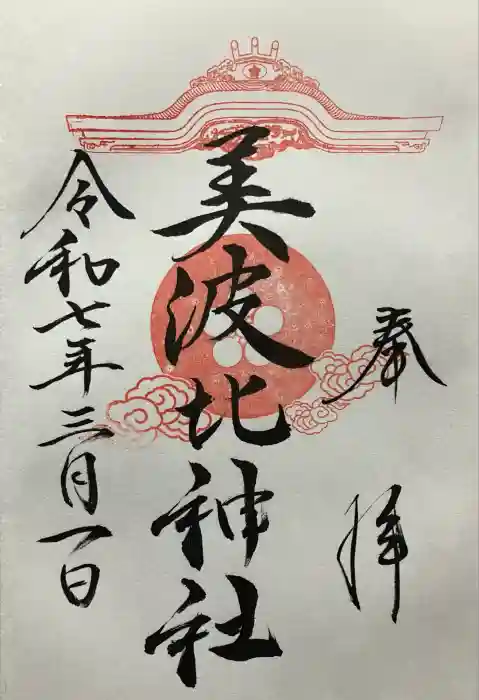 奉拜
美波比神社
令和七年三月一日